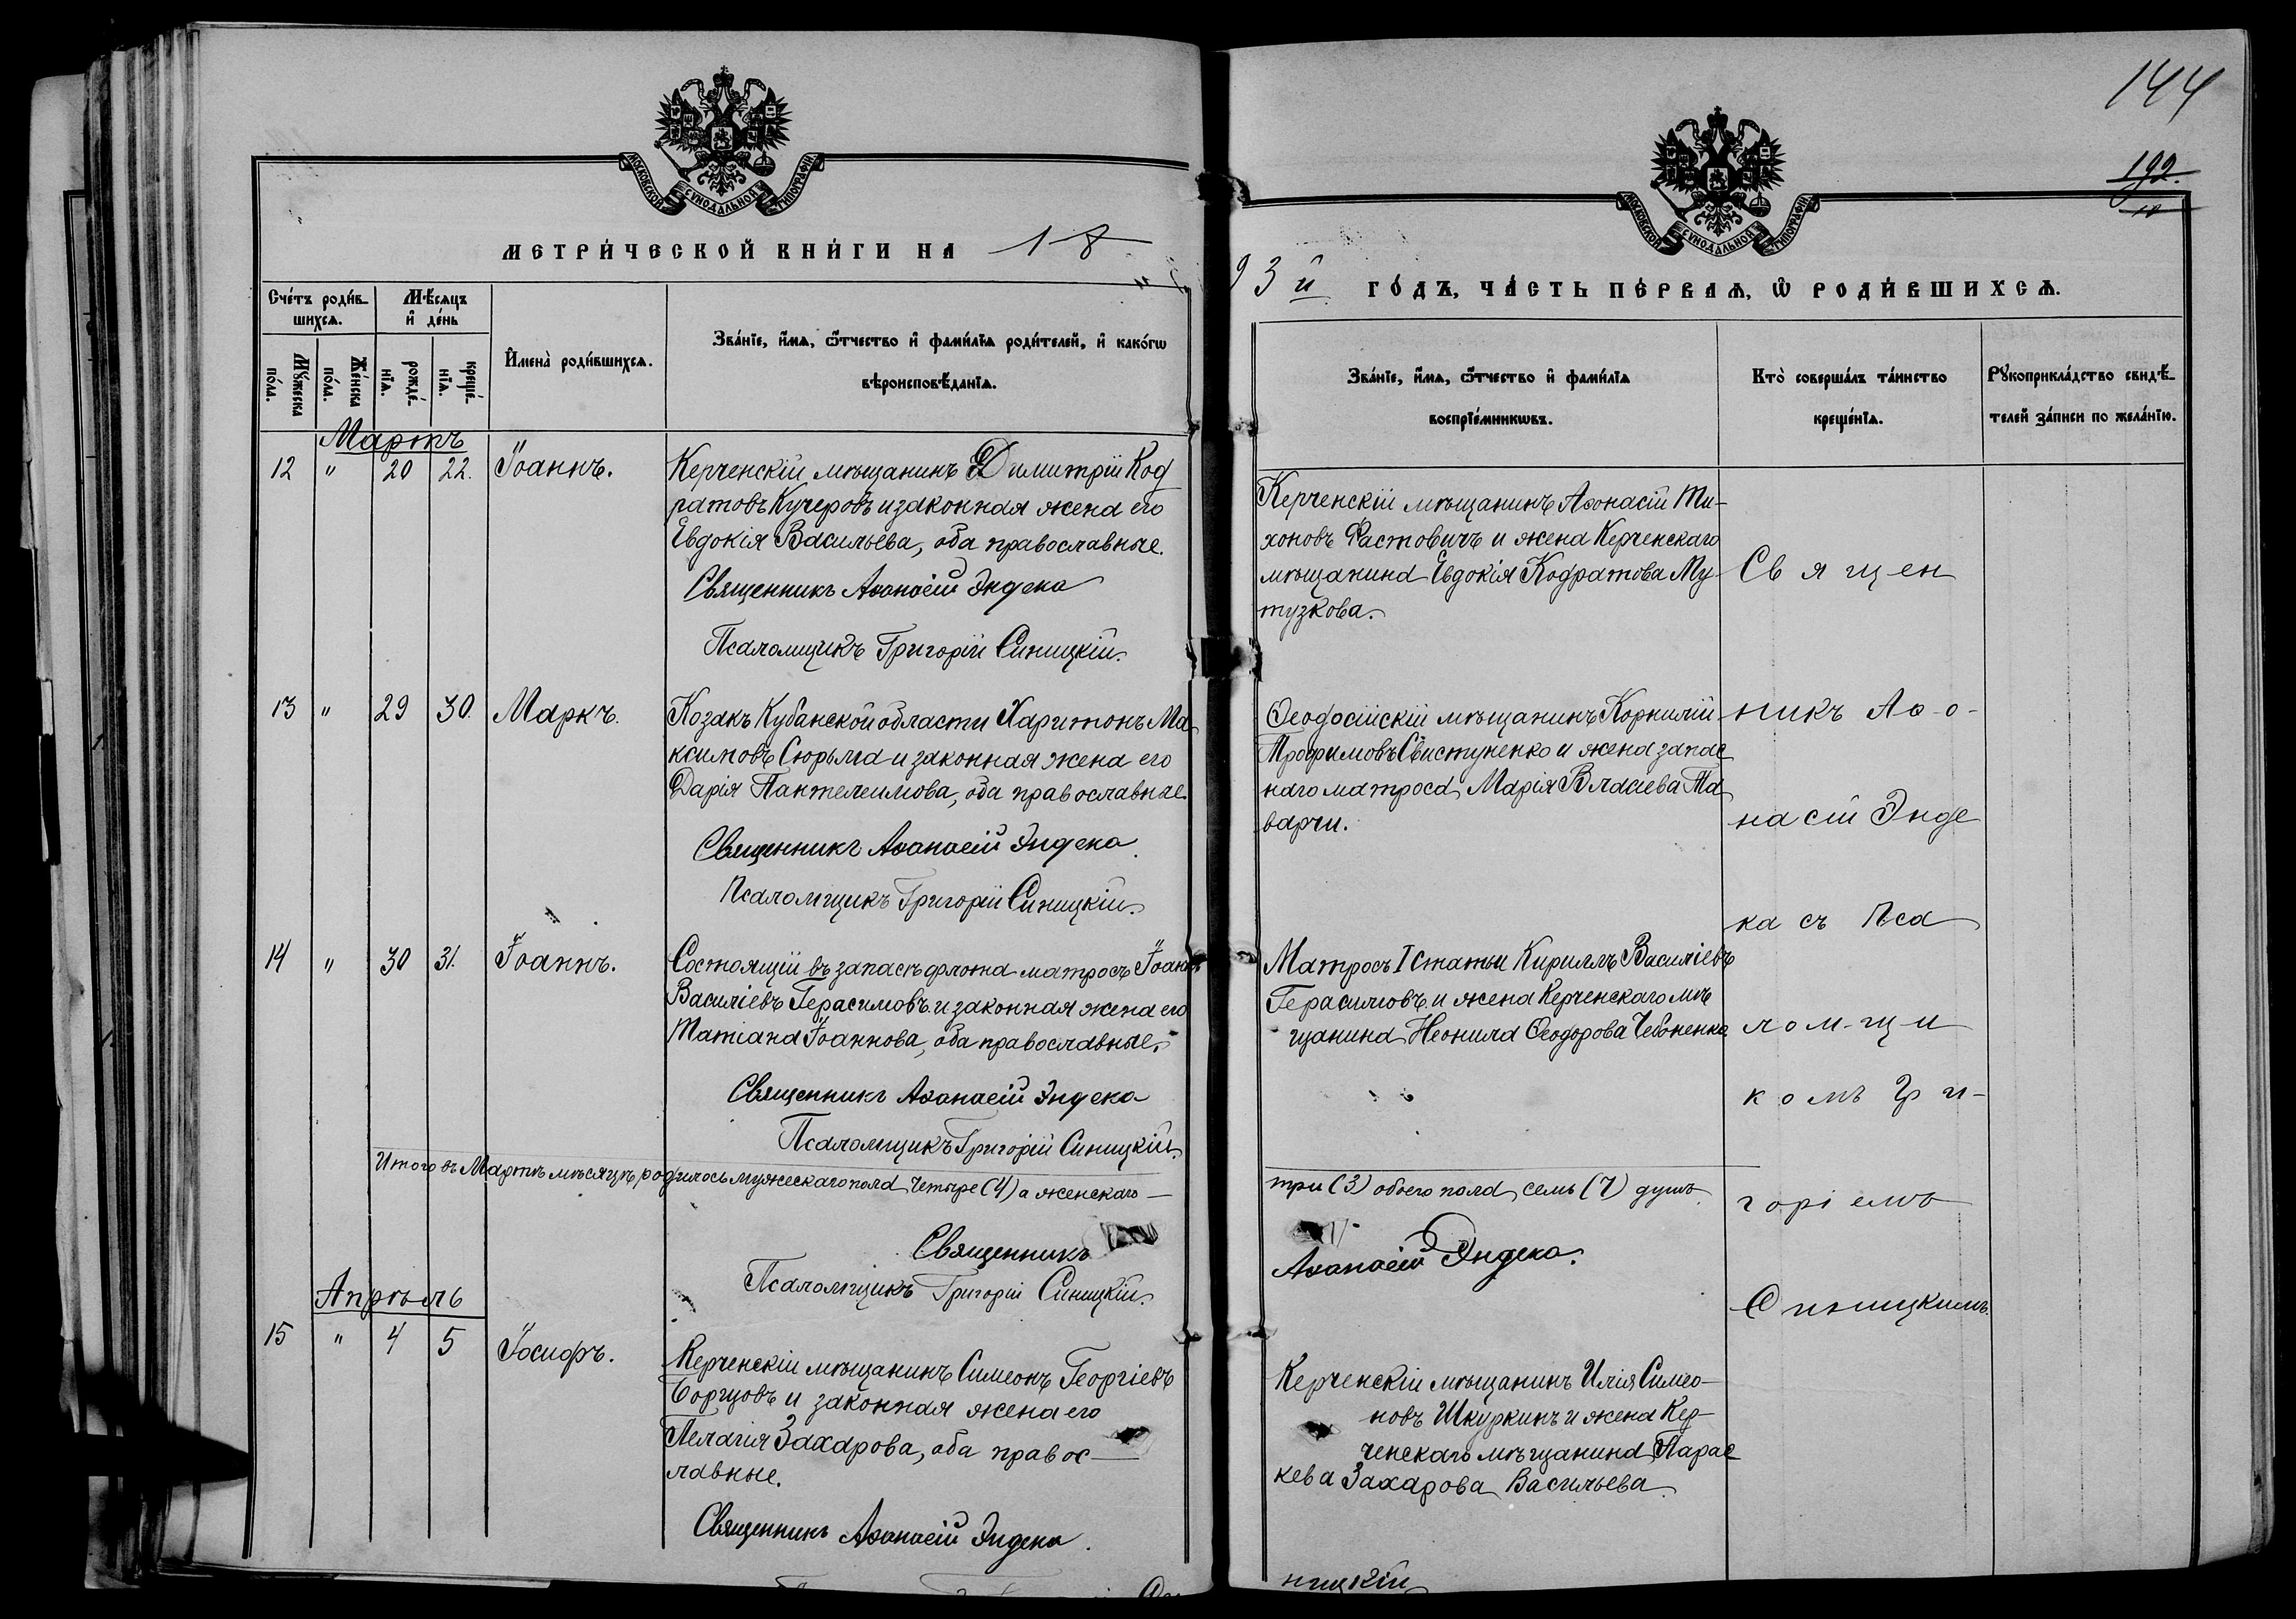 144
192.
МОСКОВСКОЙ СУНОДАЛЬНОЙ ТИПОГРАФІИ
МОСКОВСКОЙ СУНОДАЛЬНОЙ ТИПОГРАФІИ
МЕТРИ́ЧЕСКОЙ КНИ́ГИ НА 18
93 й ГО́ДЪ, ЧА́СТЬ ПЕ́РВАѦ, Ѡ҆ РОДИ́ВШИХСѦ.
Сче́тъ роди́в-
шихсѧ.
Мѣ́сѧцъ
и҆ де́нь
Мꙋ́жеска
по́ла.
Же́нска
по́ла.
рожде́-
нїѧ.
креще́-
нїѧ.
И҆мена̀ роди́вшихсѧ.
Зва́нїе, и҆́мѧ, ѻ҆́тчество и҆ фами́лїѧ роди́телей, и҆ како́гѡ
вѣроисповѣ́данїѧ.
Зва́нїе, и҆́мѧ, ѻ҆́тчество и҆ фами́лїѧ
воспрїе́мникѡвъ.
Кто̀ соверша́лъ та́инство
креще́нїѧ.
Рꙋкоприкла́дство свидѣ́-
телей за́писи по жела́нїю.
Мартъ
12 " 20 22. Іоаннъ.
Керченскій мѣщанинъ Димитрій Код
ратовъ Кучеровъ и законная жена его
Евдокія Васильева, оба православные.
Священникъ Аѳанасій Эндека
Псаломщикъ Григорій Синицкій.
Керченскій мѣщанинъ Аѳонасій Ти-
хоновъ Фастовичъ и жена Керченскаго
мѣщанина Евдокія Кодратова Му-
тузкова.
Священ
13 " 29 30. Маркъ.
Козакъ Кубанской области Харитонъ Ма-
ксимовъ Сюрьма и законная жена его
Дарія Пантелеимова, оба православные
Священникъ Аѳанасій Эндека.
Псаломщикъ Григорій Синицкій.
Ѳеодосійскій мѣщанинъ Корнилій
Трофимовъ Свистуненко и жена запас
наго матроса Марія Власіева Та
варчи.
никъ Аѳо-
насій Энде
ка съ Пса
14 " 30 31. Іоаннъ.
Состоящій въ запасѣ флота матросъ Іоаннъ
Василіевъ Герасимовъ и законная жена его
Татіана Іоаннова, оба православные.
Священникъ Аѳанасій Эндека
Псаломщикъ Григорій Синицкій.
Матросъ I статьи Кириллъ Василіевъ
Герасимовъ и жена Керченскаго мѣ
щанина Неонила Ѳеодорова Чебоненко
лом-щи
комъ Гри-
Итого въ Мартѣ мѣсяцѣ родилось мужескаго пола четыре (4) а женскаго —
три (3) обоего пола семь (7) душъ.
горіемъ
Священникъ
Аѳанасій Эндека.
Псаломщикъ Григорій Синицкій.
Синицкимъ.
Апрѣль
15 " 4 5 Іосифъ.
Керченскій мѣщанинъ Симеонъ Георгіевъ
Борцовъ и законная жена его
Пелагія Захарова, оба правос—
лавные.
Священникъ Аѳанасій Эндека.
Керченскій мѣщанинъ Илія Симео-
новъ Шкуркинъ и жена Кер-
ченскаго мѣщанина Парас
кева Захарова Васильева.
ницкій